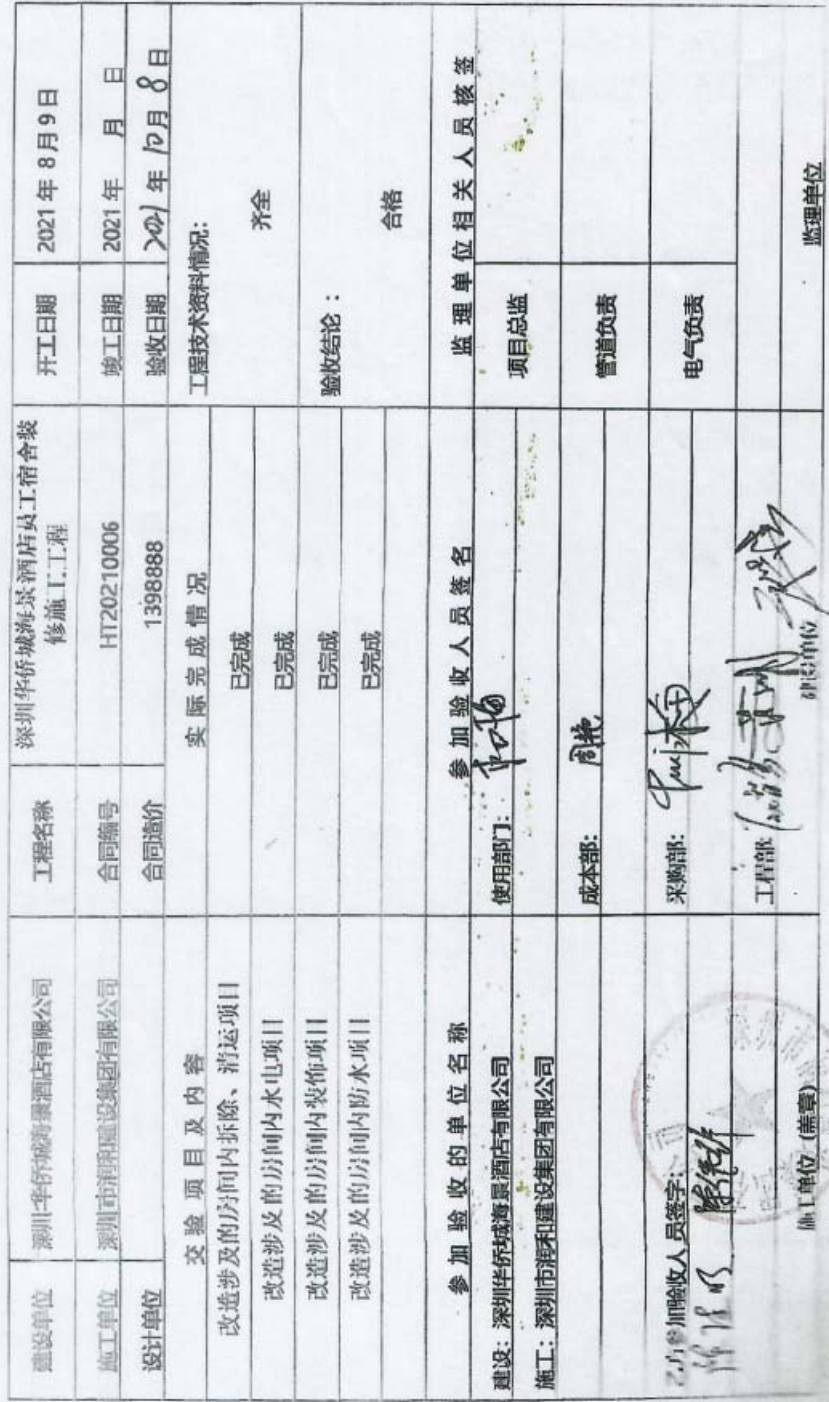 建设单位 深圳华侨城海景酒店有限公司 工程名称 深圳华侨城海景酒店员工宿舍装修施工工程 开工日期 2021年8月9日
施工单位 深圳市润和建设集团有限公司 合同编号 HT20210006 竣工日期 2021年 月 日
设计单位 合同造价 1398888 验收日期 2021年10月8日
交验项目及内容 实际完成情况 工程技术资料情况:
改造涉及的房间内拆除、清运项目 已完成 齐全
改造涉及的房间内水电项目 已完成
改造涉及的房间内装饰项目 已完成 验收结论:
改造涉及的房间内防水项目 已完成 合格
参加验收的单位名称 参加验收人员签名 监理单位相关人员核签
建设:深圳华侨城海景酒店有限公司 使用部门: 项目总监
施工:深圳市润和建设集团有限公司
成本部: 周艳 管道负责
乙方参加验收人员签字: 采购部: 电气负责
工程部:
施工单位(盖章) 建设单位 监理单位